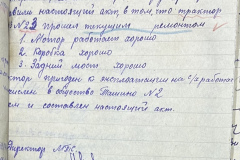 вили настоящий акт в том, что трактор
№ 23 прошел текущим ремонтом
1. Мотор работает хорошо
2. Коробка хорошо
3. Задний мост хорошо
тор пригоден к эксплоатации на с/х работах
в общество № 2
ем и составлен настоящий акт.
Директор МТС